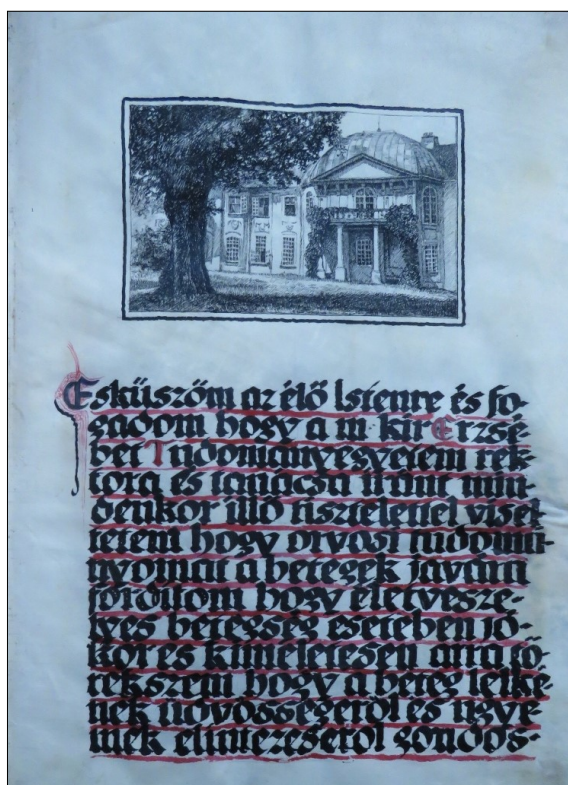 Esküszöm az élő Istenre és fo-
gadom hogy a m. kir Erzsé-
bet Tudományegyetem rek-
tora és tanácsa iránt min-
denkor illő tisztelettel visel
tetem hogy orvosi tudomá-
nyomat a betegek javára
fordítom hogy életvesze-
lyes betegség esetében jó-
kor és kíméletesen arra tö-
rekszem hogy a beteg lelké-
nek üdvösségéről és ügye-
inek elintézéséről gondos-